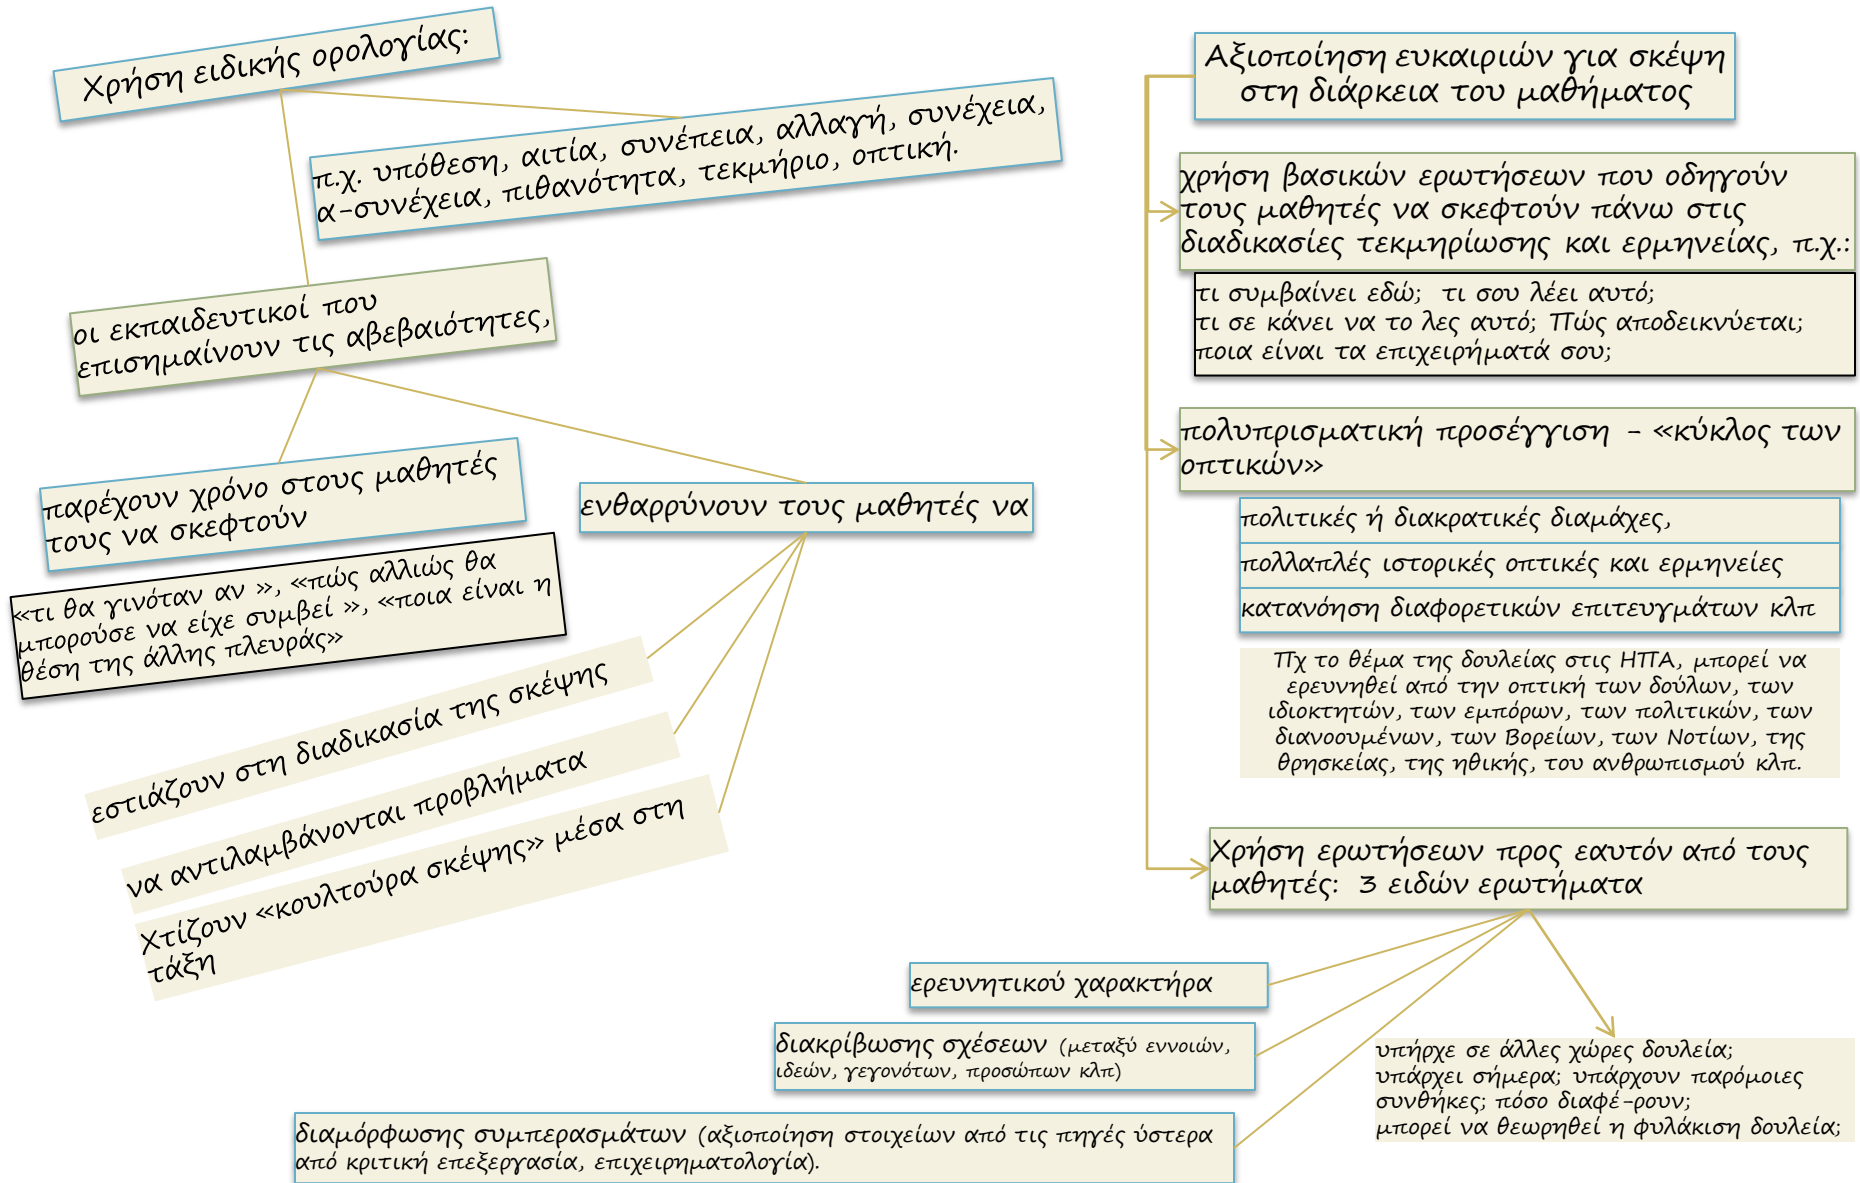 Χρήση ειδικής ορολογίας:
π.χ. υπόθεση, αιτία, συνέπεια, αλλαγή, συνέχεια,
α-συνέχεια, πιθανότητα, τεκμήριο, οπτική.
οι εκπαιδευτικοί που
επισημαίνουν τις αβεβαιότητες,
παρέχουν χρόνο στους μαθητές
τους να σκεφτούν
«τι θα γινόταν αν », «πώς αλλιώς θα
μπορούσε να είχε συμβεί », «ποια είναι η
θέση της άλλης πλευράς»
ενθαρρύνουν τους μαθητές να
εστιάζουν στη διαδικασία της σκέψης
να αντιλαμβάνονται προβλήματα
Χτίζουν «κουλτούρα σκέψης» μέσα στη
τάξη
Αξιοποίηση ευκαιριών για σκέψη
στη διάρκεια του μαθήματος
χρήση βασικών ερωτήσεων που οδηγούν
τους μαθητές να σκεφτούν πάνω στις
διαδικασίες τεκμηρίωσης και ερμηνείας, π.χ.:
τι συμβαίνει εδώ; τι σου λέει αυτό;
τι σε κάνει να το λες αυτό; Πώς αποδεικνύεται;
ποια είναι τα επιχειρήματά σου;
πολυπρισματική προσέγγιση - «κύκλος των
οπτικών»
πολιτικές ή διακρατικές διαμάχες,
πολλαπλές ιστορικές οπτικές και ερμηνείες
κατανόηση διαφορετικών επιτευγμάτων κλπ
Πχ το θέμα της δουλείας στις ΗΠΑ, μπορεί να
ερευνηθεί από την οπτική των δούλων, των
ιδιοκτητών, των εμπόρων, των πολιτικών, των
διανοουμένων, των Βορείων, των Νοτίων, της
θρησκείας, της ηθικής, του ανθρωπισμού κλπ.
Χρήση ερωτήσεων προς εαυτόν από τους
μαθητές: 3 ειδών ερωτήματα
ερευνητικού χαρακτήρα
διακρίβωσης σχέσεων (μεταξύ εννοιών,
ιδεών, γεγονότων, προσώπων κλπ)
διαμόρφωσης συμπερασμάτων (αξιοποίηση στοιχείων από τις πηγές ύστερα
από κριτική επεξεργασία, επιχειρηματολογία).
υπήρχε σε άλλες χώρες δουλεία;
υπάρχει σήμερα; υπάρχουν παρόμοιες
συνθήκες; πόσο διαφέ-ρουν;
μπορεί να θεωρηθεί η φυλάκιση δουλεία;